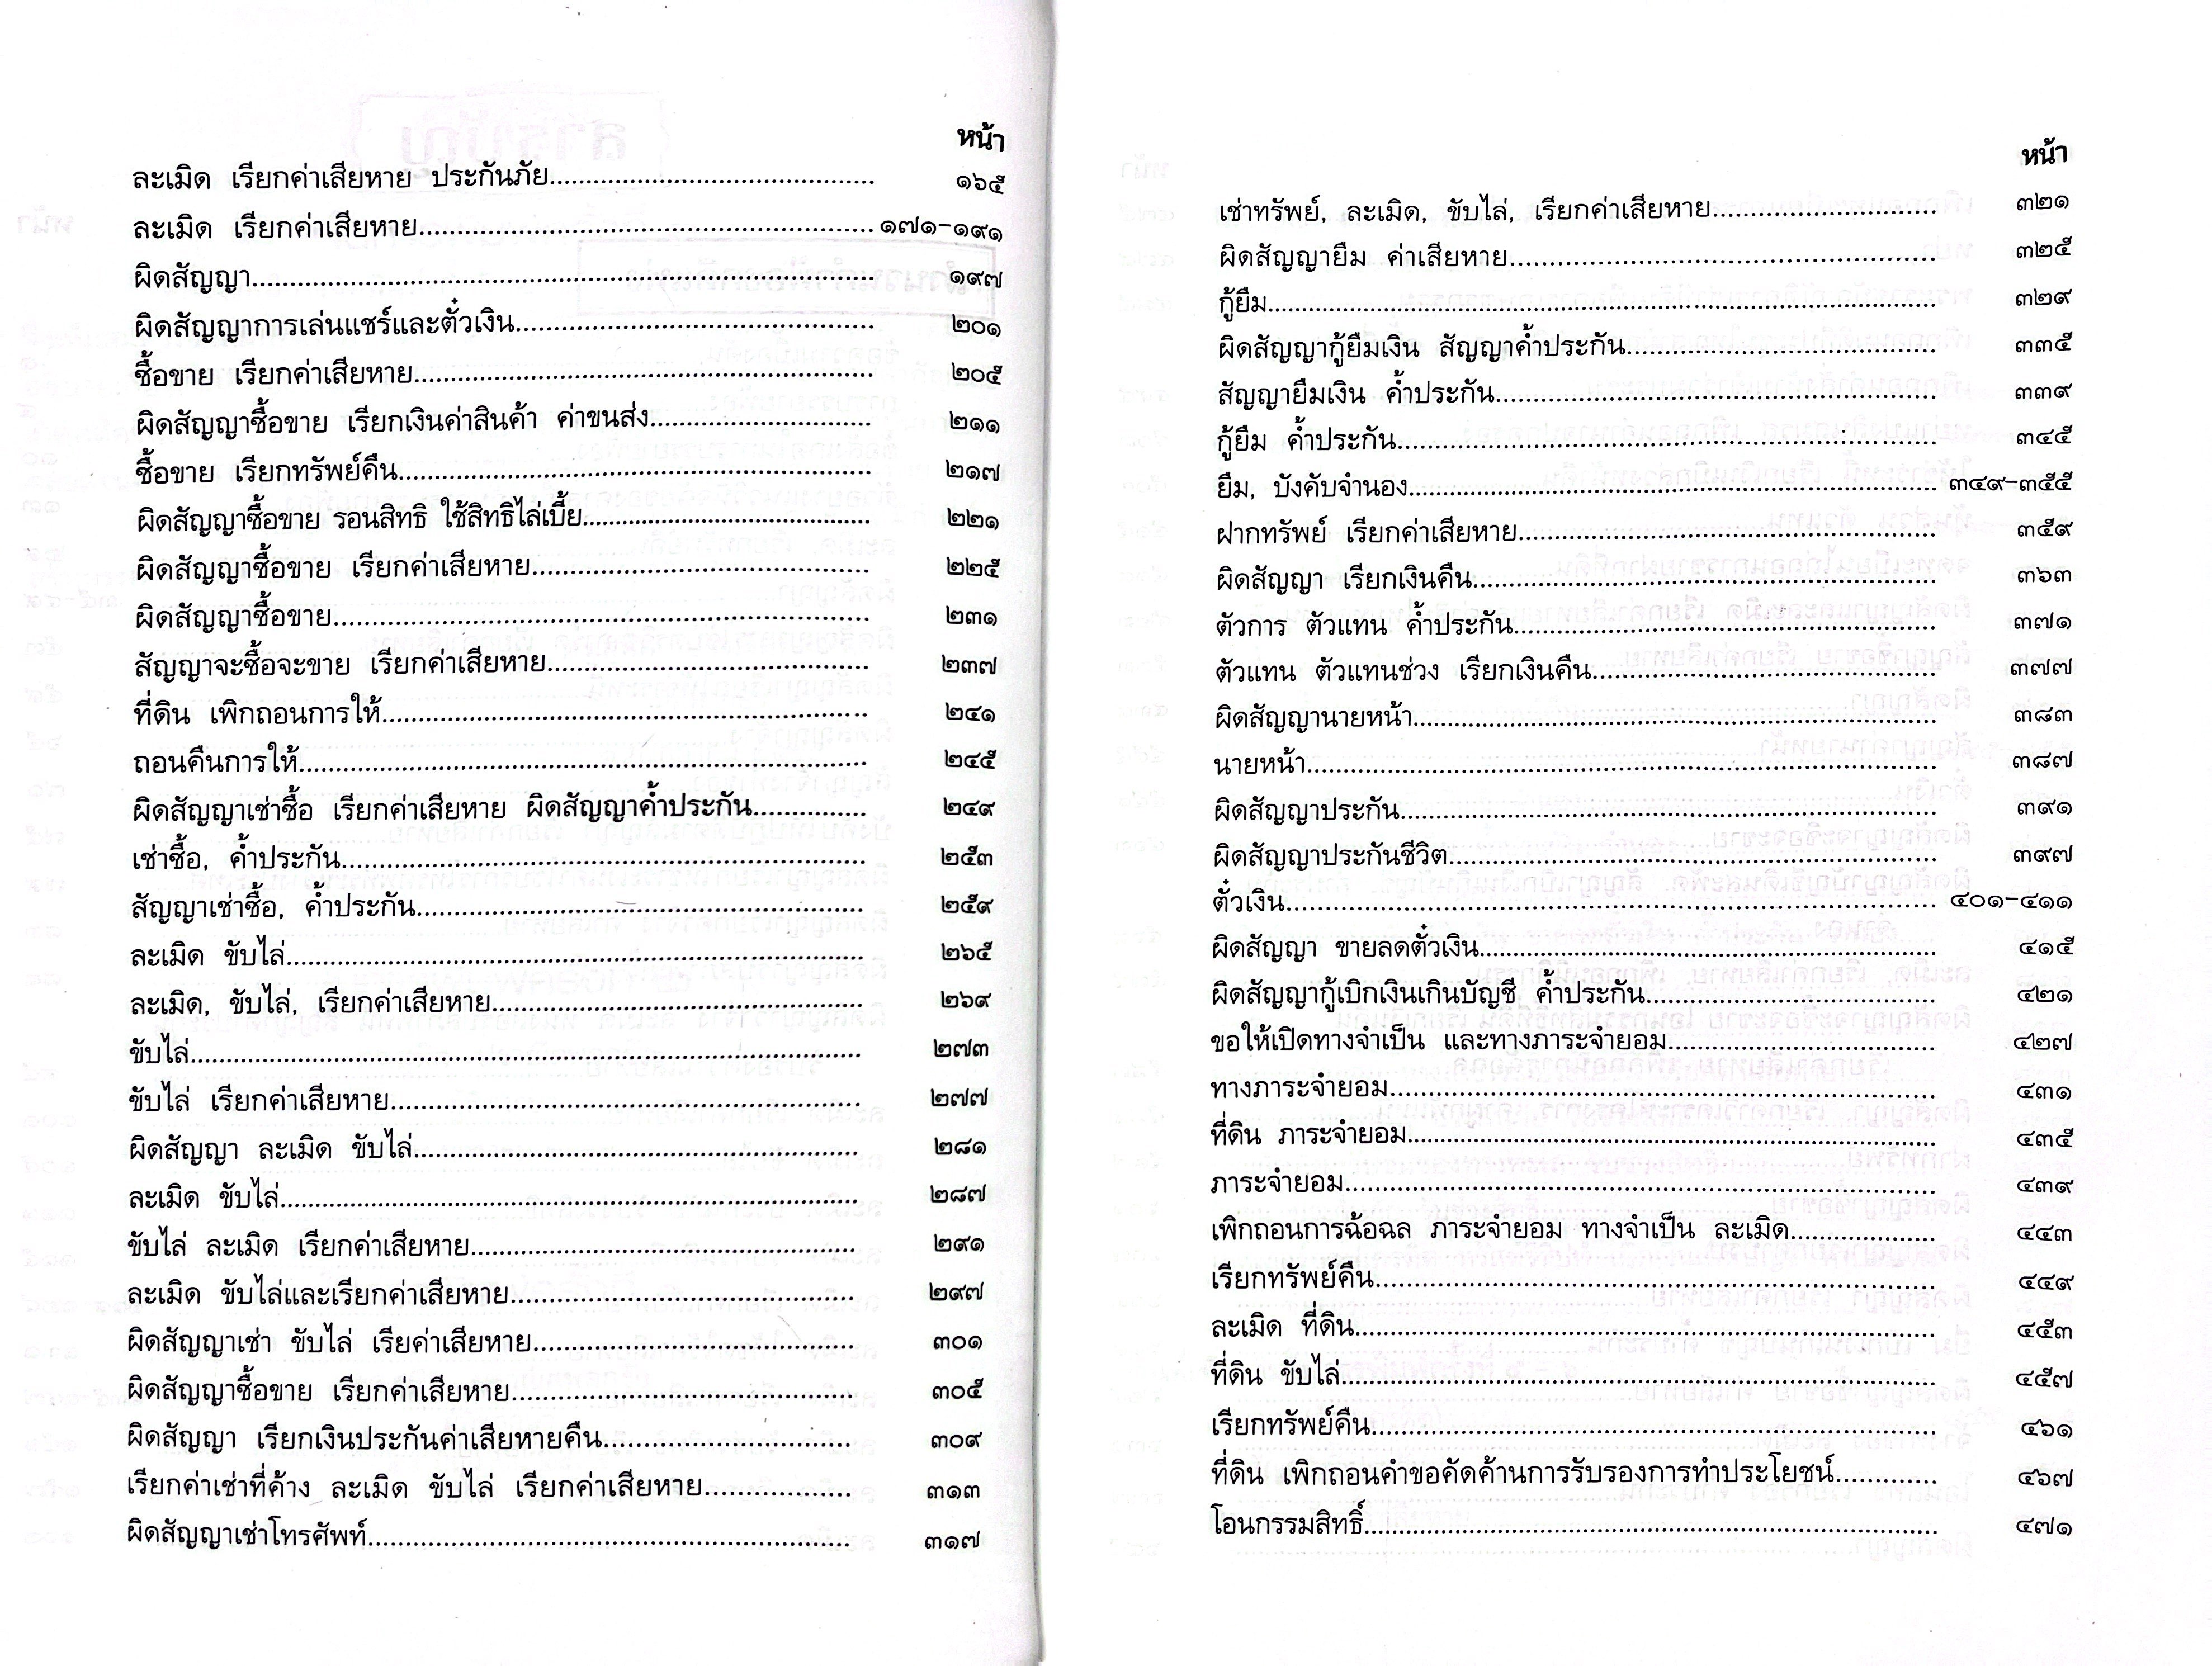 หน้า
ละเมิด เรียกค่าเสียหาย ประกันภัย.......... ๑๖๕
ละเมิด เรียกค่าเสียหาย.......... ๑๗๑-๑๙๑
ผิดสัญญา.......... ๑๙๗
ผิดสัญญาการเล่นแชร์และตั๋วเงิน.......... ๒๐๑
ซื้อขาย เรียกค่าเสียหาย.......... ๒๐๕
ผิดสัญญาซื้อขาย เรียกเงินค่าสินค้า ค่าขนส่ง.......... ๒๑๑
ซื้อขาย เรียกทรัพย์คืน.......... ๒๑๗
ผิดสัญญาซื้อขาย รอนสิทธิ ใช้สิทธิไล่เบี้ย.......... ๒๒๑
ผิดสัญญาซื้อขาย เรียกค่าเสียหาย.......... ๒๒๕
ผิดสัญญาซื้อขาย.......... ๒๓๑
สัญญาจะซื้อจะขาย เรียกค่าเสียหาย.......... ๒๓๗
ที่ดิน เพิกถอนการให้.......... ๒๔๑
ถอนคืนการให้.......... ๒๔๕
ผิดสัญญาเช่าซื้อ เรียกค่าเสียหาย ผิดสัญญาค้ำประกัน.......... ๒๔๙
เช่าซื้อ, ค้ำประกัน.......... ๒๕๓
สัญญาเช่าซื้อ, ค้ำประกัน.......... ๒๕๙
ละเมิด ขับไล่.......... ๒๖๕
ละเมิด, ขับไล่, เรียกค่าเสียหาย.......... ๒๖๙
ขับไล่.......... ๒๗๓
ขับไล่ เรียกค่าเสียหาย.......... ๒๗๗
ผิดสัญญา ละเมิด ขับไล่.......... ๒๘๑
ละเมิด ขับไล่.......... ๒๘๗
ขับไล่ ละเมิด เรียกค่าเสียหาย.......... ๒๙๑
ละเมิด ขับไล่และเรียกค่าเสียหาย.......... ๒๙๗
ผิดสัญญาเช่า ขับไล่ เรียค่าเสียหาย.......... ๓๐๑
ผิดสัญญาซื้อขาย เรียกค่าเสียหาย.......... ๓๐๕
ผิดสัญญา เรียกเงินประกันค่าเสียหายคืน.......... ๓๐๙
เรียกค่าเช่าที่ค้าง ละเมิด ขับไล่ เรียกค่าเสียหาย.......... ๓๑๓
ผิดสัญญาเช่าโทรศัพท์.......... ๓๑๗
หน้า
เช่าทรัพย์, ละเมิด, ขับไล่, เรียกค่าเสียหาย.......... ๓๒๑
ผิดสัญญายืม ค่าเสียหาย.......... ๓๒๕
กู้ยืม.......... ๓๒๙
ผิดสัญญากู้ยืมเงิน สัญญาค้ำประกัน.......... ๓๓๕
สัญญายืมเงิน ค้ำประกัน.......... ๓๓๙
กู้ยืม ค้ำประกัน.......... ๓๔๕
ยืม, บังคับจำนอง.......... ๓๔๙-๓๕๕
ฝากทรัพย์ เรียกค่าเสียหาย.......... ๓๕๙
ผิดสัญญา เรียกเงินคืน.......... ๓๖๓
ตัวการ ตัวแทน ค้ำประกัน.......... ๓๗๑
ตัวแทน ตัวแทนช่วง เรียกเงินคืน.......... ๓๗๗
ผิดสัญญานายหน้า.......... ๓๘๓
นายหน้า.......... ๓๘๗
ผิดสัญญาประกัน.......... ๓๙๑
ผิดสัญญาประกันชีวิต.......... ๓๙๗
ตั๋วเงิน.......... ๔๐๑-๔๑๑
ผิดสัญญา ขายลดตั๋วเงิน.......... ๔๑๕
ผิดสัญญากู้เบิกเงินเกินบัญชี ค้ำประกัน.......... ๔๒๑
ขอให้เปิดทางจำเป็น และทางภาระจำยอม.......... ๔๒๗
ทางภาระจำยอม.......... ๔๓๑
ที่ดิน ภาระจำยอม.......... ๔๓๕
ภาระจำยอม.......... ๔๓๙
เพิกถอนการฉ้อฉล ภาระจำยอม ทางจำเป็น ละเมิด.......... ๔๔๓
เรียกทรัพย์คืน.......... ๔๔๙
ละเมิด ที่ดิน.......... ๔๕๓
ที่ดิน ขับไล่.......... ๔๕๗
เรียกทรัพย์คืน.......... ๔๖๑
ที่ดิน เพิกถอนคำขอคัดค้านการรับรองการทำประโยชน์.......... ๔๖๗
โอนกรรมสิทธิ์.......... ๔๗๑